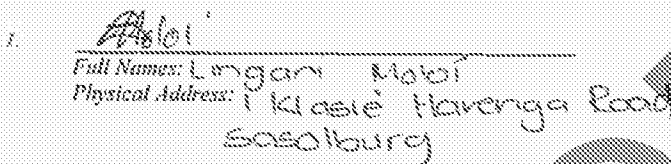 1.
Full Names: Lingani Mobi
Physical Address: 1 Klasie Havenga Road
Sasolburg